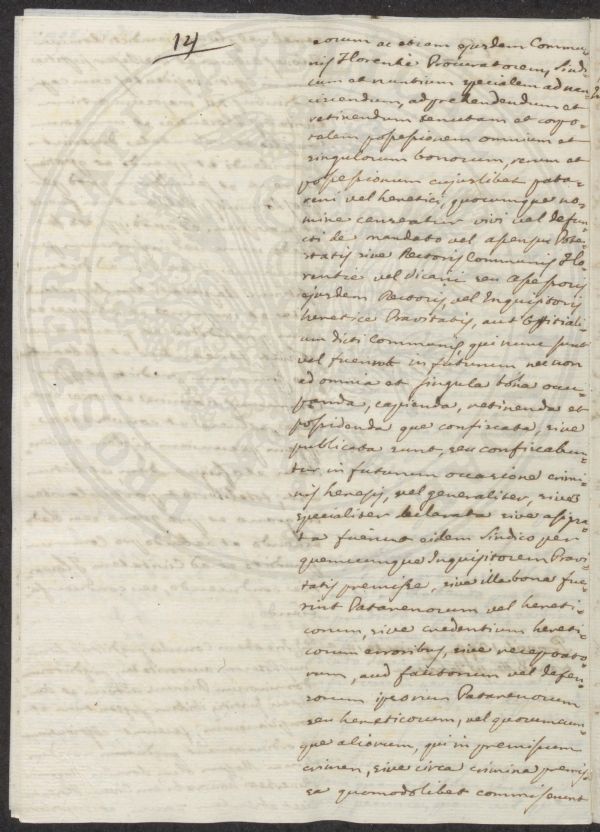 14
eorum ac etiam ejusdem Commu-
nis Florentie Procuratorem, Sindi-
cum et nuntium specialem ad nan-
ciscendum, adprehendendum et
retinendum tenutam et corpo-
ralem possessionem omnium et
singulorum bonorum, rerum et
possessionum cujuslibet pata-
reni vel heretici, quocumque no-
mine censeatur vivi vel defun-
cti de mandato vel assensu Pote-
statis sive Rectoris Communis Flo-
rentie vel Vicarii seu Assessoris
ejusdem Rectoris, vel Inquisitoris
heretice Pravitatis, aut Offitiali-
um dicti Communis qui nunc sunt
vel fuerint in futurum nec non
ad omnia et singula bona occu-
panda, capienda, retinenda et
possidenda que confiscata, sive
publicata sunt, seu confiscabun-
tur in futurum occasione crimi-
nis heresis, vel generaliter, sive
specialiter declarata sive
ta fuerint eidem Sindico per
quemcumque Inquisitorem Pravi-
tatis premisse, sive illa bona fue-
rint Patarenorum vel hereti-
corum, sive credentium hereti-
corum erroribus, sive receptato-
rum, aud fautorum vel defen-
sorum ipsorum Patarenorum
seu hereticorum, vel quorumcun-
que aliorum, qui in premissum
crimen, sive circa crimina premis-
sa quomodolibet commiserunt